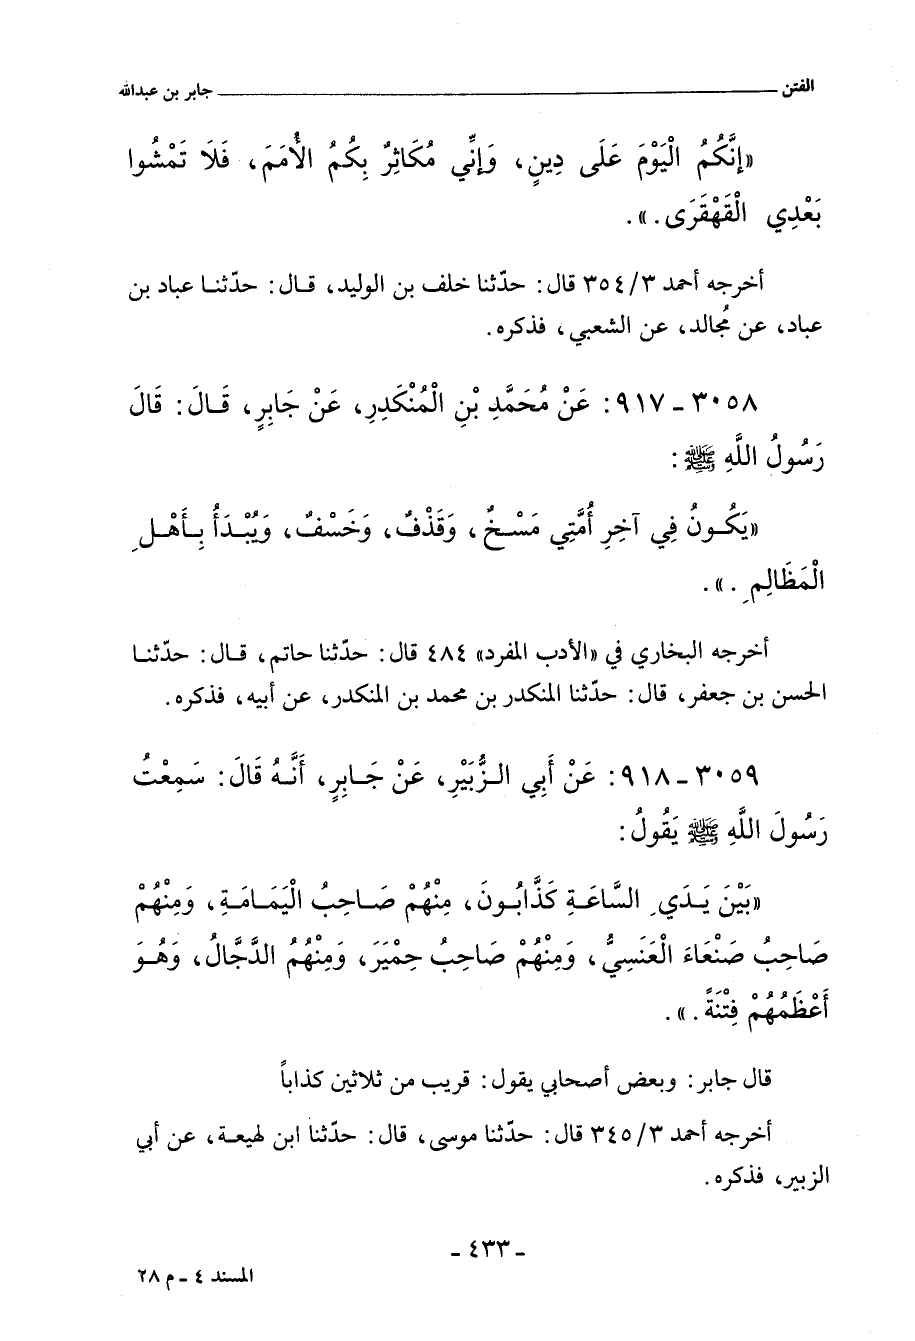 الفتن ــــــــــــــــــــ جابر بن عبدالله
«إِنَّكُمُ الْيَوْمَ عَلَى دِينٍ، وَإِنِّي مُكَاثِرٌ بِكُمُ الأُمَمَ، فَلَا تَمْشُوا
بَعْدِي الْقَهْقَرَى.».
أخرجه أحمد ٣٥٤/٣ قال: حدّثنا خلف بن الوليد، قال: حدّثنا عباد بن
عباد، عن مُجالد، عن الشعبي، فذكره.
٣٠٥٨ - ٩١٧: عَنْ مُحَمَّدِ بْنِ الْمُنْكَدِرِ، عَنْ جَابِرٍ، قَالَ: قَالَ
رَسُولُ اللَّهِ ﷺ:
«يَكُونُ فِي آخِرِ أُمَّتِي مَسْخٌ، وَقَذْفٌ، وَخَسْفٌ، وَيُبْدَأُ بِأَهْلِ
الْمَظَالِمِ.».
أخرجه البخاري في «الأدب المفرد» ٤٨٤ قال: حدّثنا حاتم، قال: حدّثنا
الحسن بن جعفر، قال: حدّثنا المنكدر بن محمد بن المنكدر، عن أبيه، فذكره.
٣٠٥٩ - ٩١٨: عَنْ أَبِي الزُّبَيْرِ، عَنْ جَابِرٍ، أَنَّهُ قَالَ: سَمِعْتُ
رَسُولَ اللَّهِ ﷺ يَقُولُ:
«بَيْنَ يَدَيِ السَّاعَةِ كَذَّابُونَ، مِنْهُمْ صَاحِبُ الْيَمَامَةِ، وَمِنْهُمْ
صَاحِبُ صَنْعَاءَ الْعَنَسِيُّ، وَمِنْهُمْ صَاحِبُ حِمْيَرَ، وَمِنْهُمُ الدَّجَّالُ، وَهُوَ
أَعْظَمُهُمْ فِتْنَةً.».
قال جابر: وبعض أصحابي يقول: قريب من ثلاثين كذاباً
أخرجه أحمد ٣٤٥/٣ قال: حدّثنا موسى، قال: حدّثنا ابن لهيعة، عن أبي
الزبير، فذكره.
- ٤٣٣ -
المسند ٤ - م ٢٨